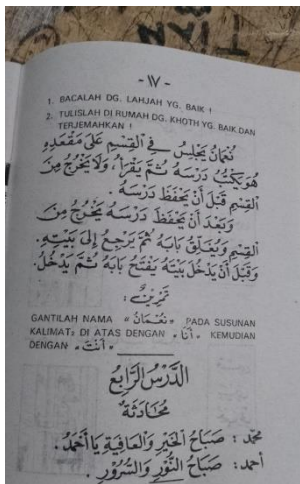 - ١٧ -
1. BACALAH DG. LAHJAH YG. BAIK !
2. TULISLAH DI RUMAH DG. KHOTH YG. BAIK DAN
TERJEMAHKAN !
نُعْمَانُ يَجْلِسُ فِي الْقِسْمِ عَلَى مَقْعَدِهِ
هُوَ يَكْتُبُ دَرْسَهُ ثُمَّ يَقْرَأُ ، وَلَا يَخْرُجُ مِنَ
الْقِسْمِ قَبْلَ أَنْ يَحْفَظَ دَرْسَهُ .
وَبَعْدَ أَنْ يَحْفَظَ دَرْسَهُ يَخْرُجُ مِنَ
الْقِسْمِ وَيُغْلِقُ بَابَهُ ثُمَّ يَرْجِعُ إِلَى بَيْتِهِ.
وَقَبْلَ أَنْ يَدْخُلَ بَيْتَهُ يَفْتَحُ بَابَهُ ثُمَّ يَدْخُلُ.
تَمْرِيْنٌ :
GANTILAH NAMA "نُعْمَانُ" PADA SUSUNAN
KALIMAT2 DI ATAS DENGAN "أَنَا" KEMUDIAN
DENGAN "أَنْتَ"
الدَّرْسُ الرَّابِعُ
مُحَادَثَةٌ
مُحَمَّد : صَبَاحُ الْخَيْرِ وَالْعَافِيَةِ يَا أَحْمَدُ .
أحمد : صَبَاحُ النُّوْرِ وَالسُّرُوْرِ .